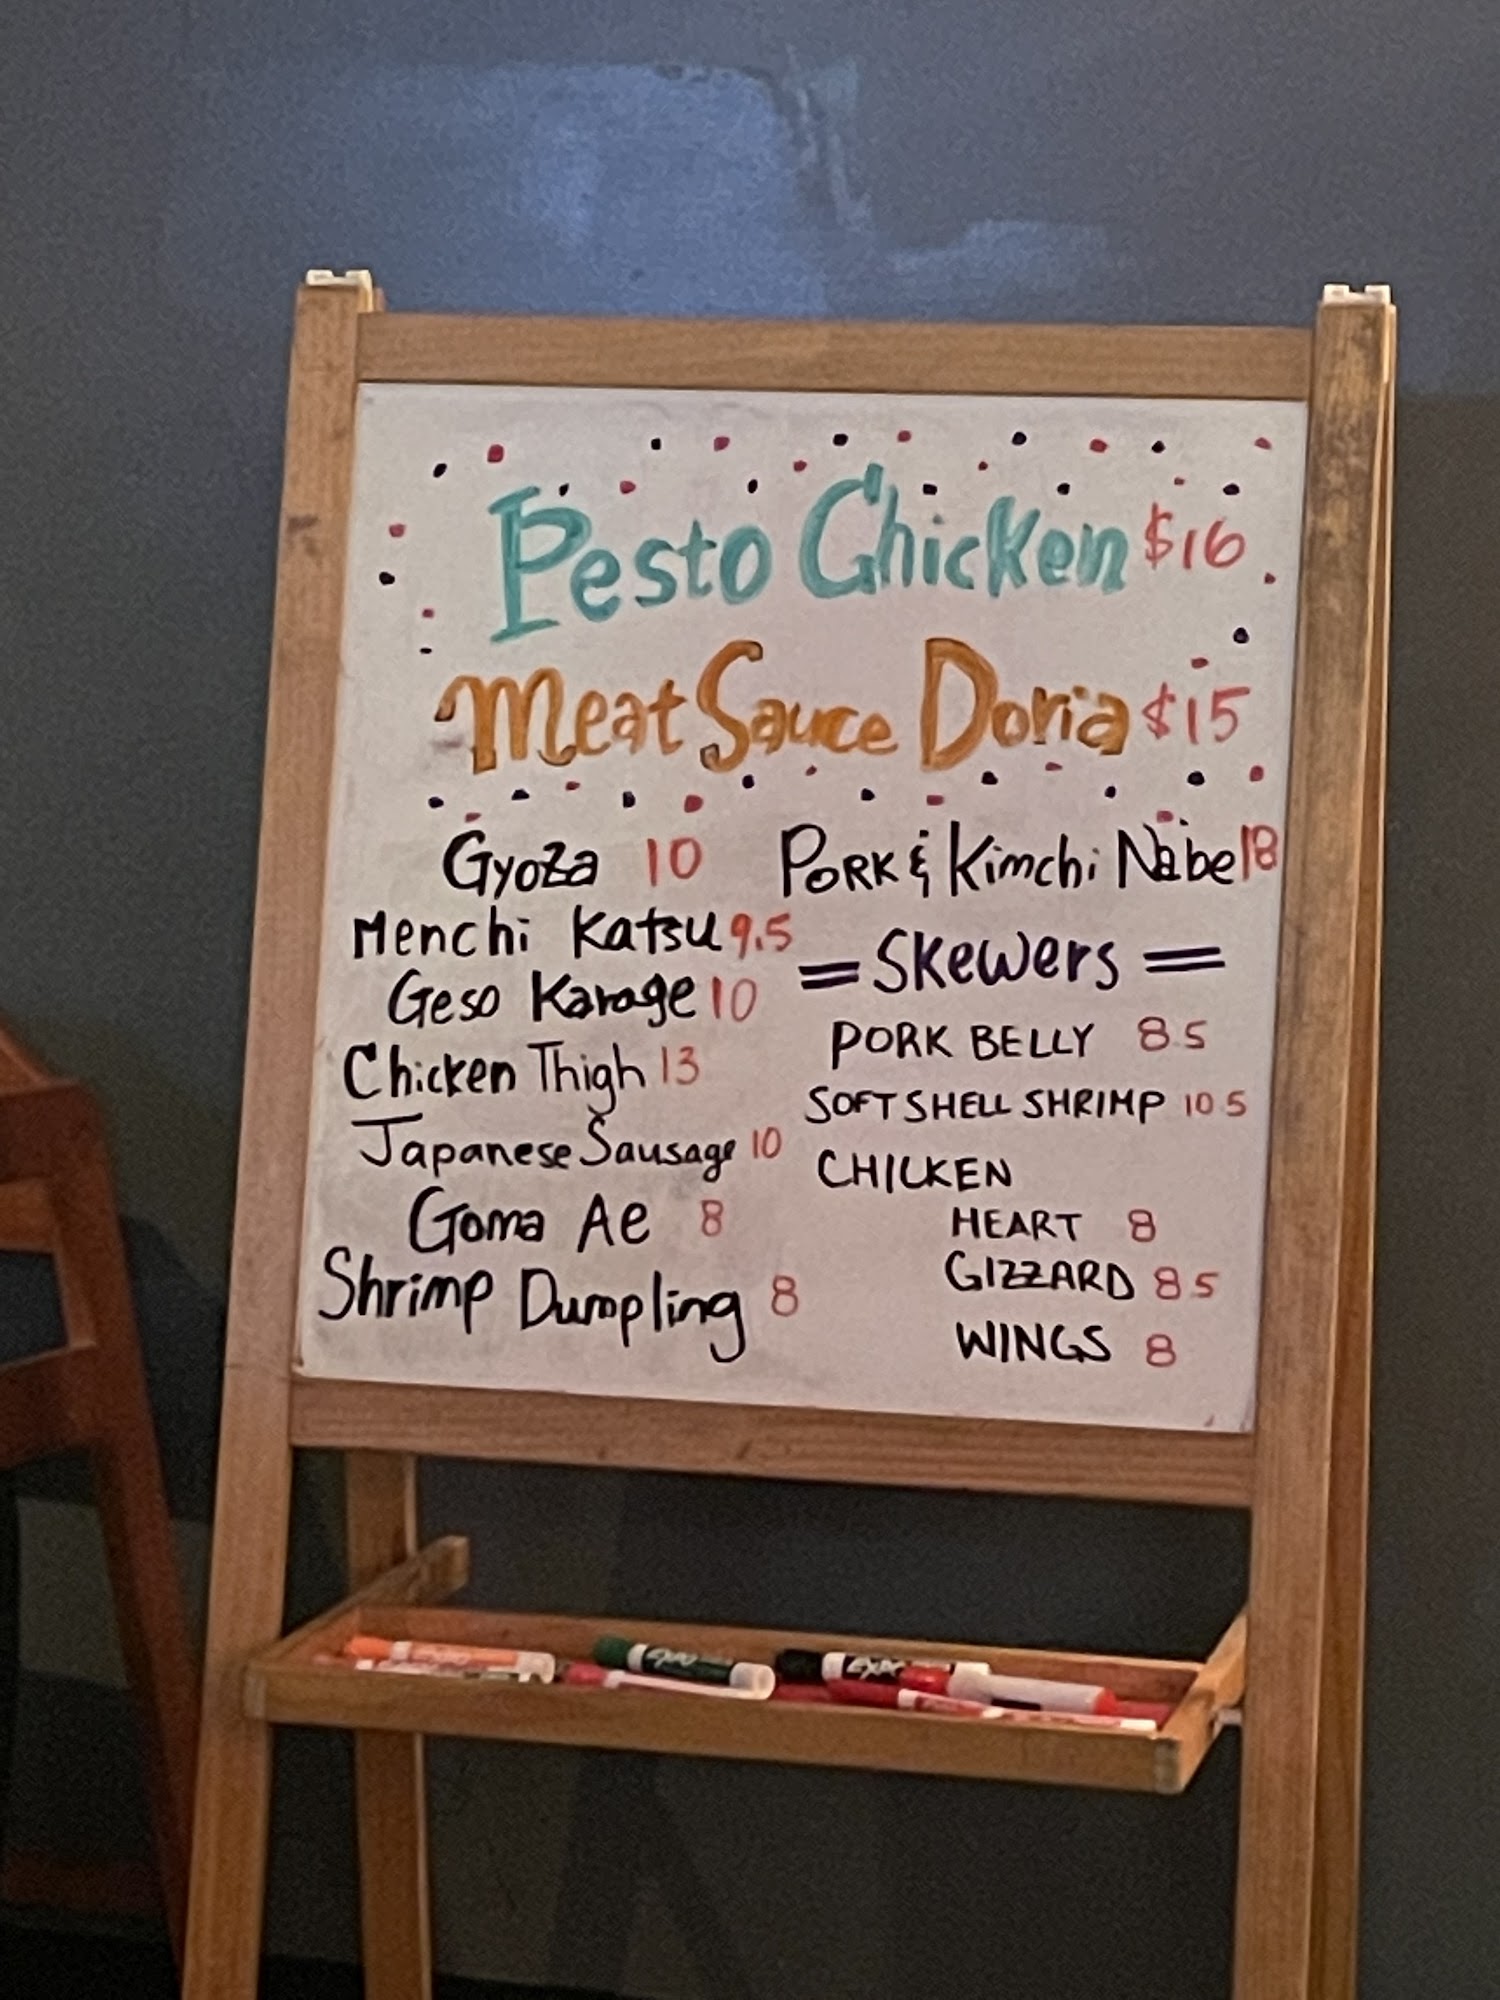 Pesto Chicken $16
Meat Sauce Doria $15
Gyoza 10
Menchi Katsu 9.5
Geso Karage 10
Chicken Thigh 13
Japanese Sausage 10
Goma Ae 8
Shrimp Dumpling 8
PORK & Kimchi Nabe 18
= SKewers =
PORK BELLY 8.5
SOFT SHELL SHRIMP 10.5
CHICKEN
HEART 8
GIZZARD 8.5
WINGS 8
EXPO
EXPO